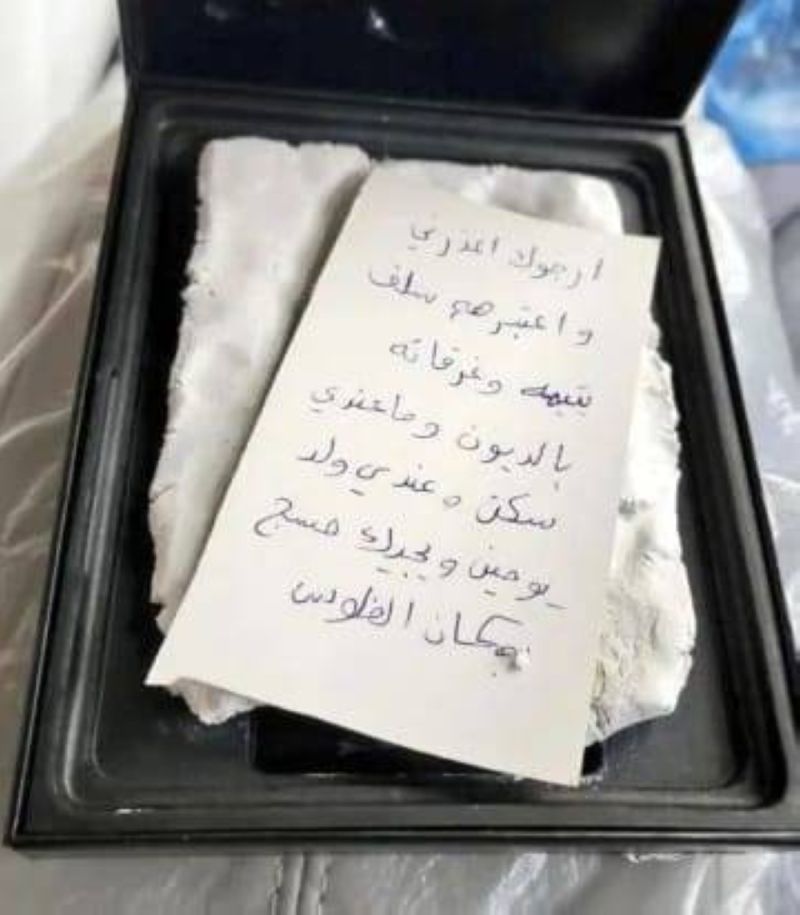 ارجوك اعذرني
و اعتبرهم سلف
يتيمه وغرقانه
بالديون وماعندي
سكن و عندي ولد
يومين ويجيك مسج
بمكان الفلوس